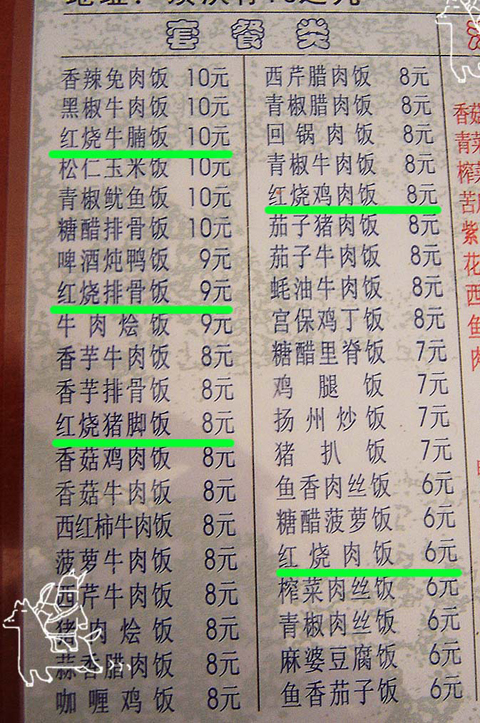 套餐类
香辣兔肉饭 10元
黑椒牛肉饭 10元
红烧牛腩饭 10元
松仁玉米饭 10元
青椒鱿鱼饭 10元
糖醋排骨饭 10元
啤酒炖鸭饭 9元
红烧排骨饭 9元
牛肉烩饭 9元
香芋牛肉饭 8元
香芋排骨饭 8元
红烧猪脚饭 8元
香菇鸡肉饭 8元
香菇牛肉饭 8元
西红柿牛肉饭 8元
菠萝牛肉饭 8元
西芹牛肉饭 8元
猪肉烩饭 8元
蒜香腊肉饭 8元
咖喱鸡饭 8元
西芹腊肉饭 8元
青椒腊肉饭 8元
回锅肉饭 8元
青椒牛肉饭 8元
红烧鸡肉饭 8元
茄子猪肉饭 8元
茄子牛肉饭 8元
蚝油牛肉饭 8元
宫保鸡丁饭 8元
糖醋里脊饭 7元
鸡腿饭 7元
扬州炒饭 7元
猪扒饭 7元
鱼香肉丝饭 6元
糖醋菠萝饭 6元
红烧肉饭 6元
榨菜肉丝饭 6元
青椒肉丝饭 6元
麻婆豆腐饭 6元
鱼香茄子饭 6元
香菇
青菜
榨菜
苦
紫
花
西
鱼
肉